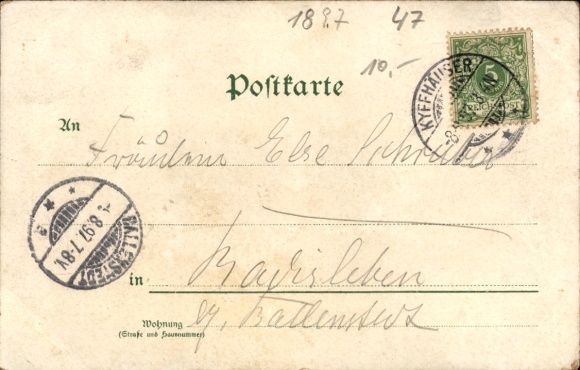 1897 47
10.-
Postkarte
5
REICHSPOST
KYFFHÄUSER
An
Fräulein Else Schrader
8.97.7-8V.
BALLENSTEDT
in Radisleben
b/. Ballenstedt
Wohnung
(Straße und Hausnummer)